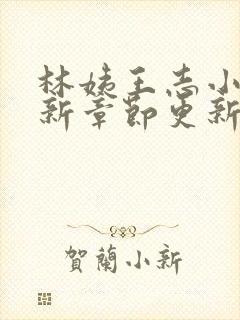 林姨王志小
新章節更新
賀蘭小新